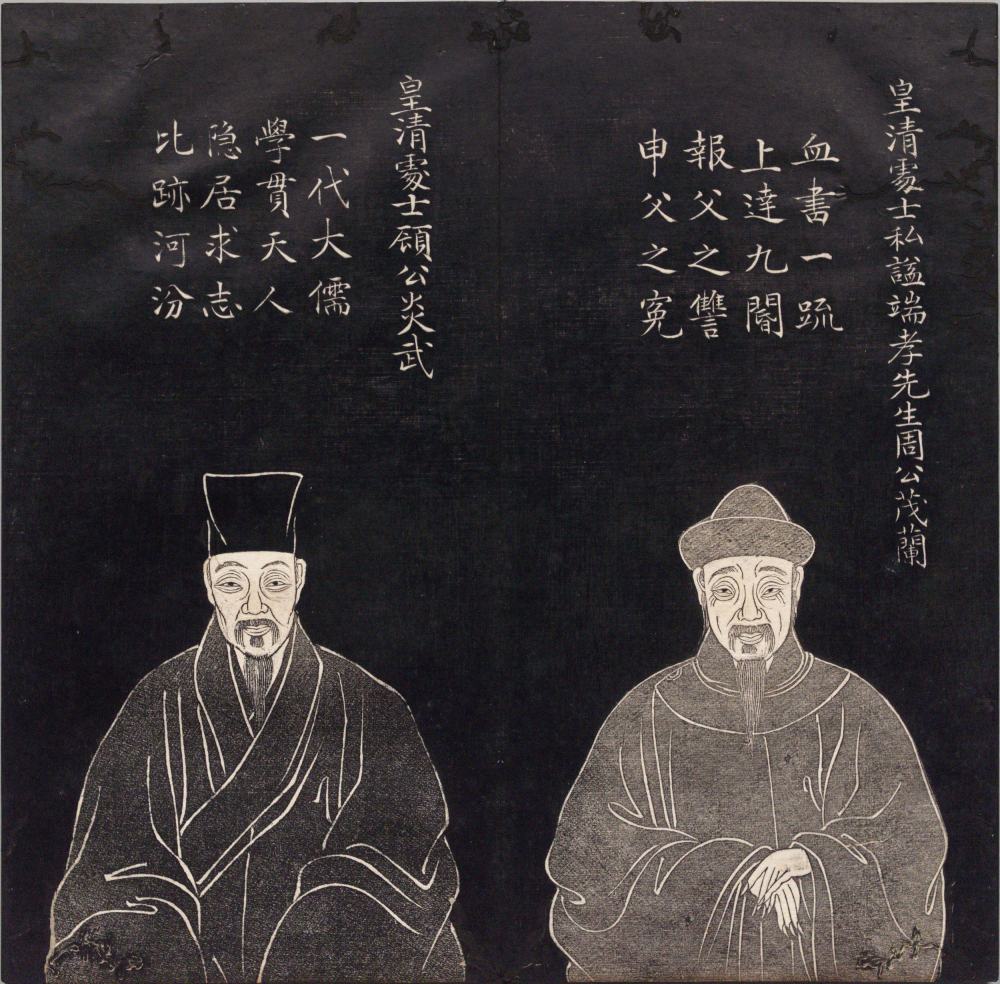 皇清處士私謚端孝先生周公茂蘭
血書一疏
上達九閽
報父之讐
申父之冤
皇清處士顧公炎武
一代大儒
學貫天人
隐居求志
比跡河汾